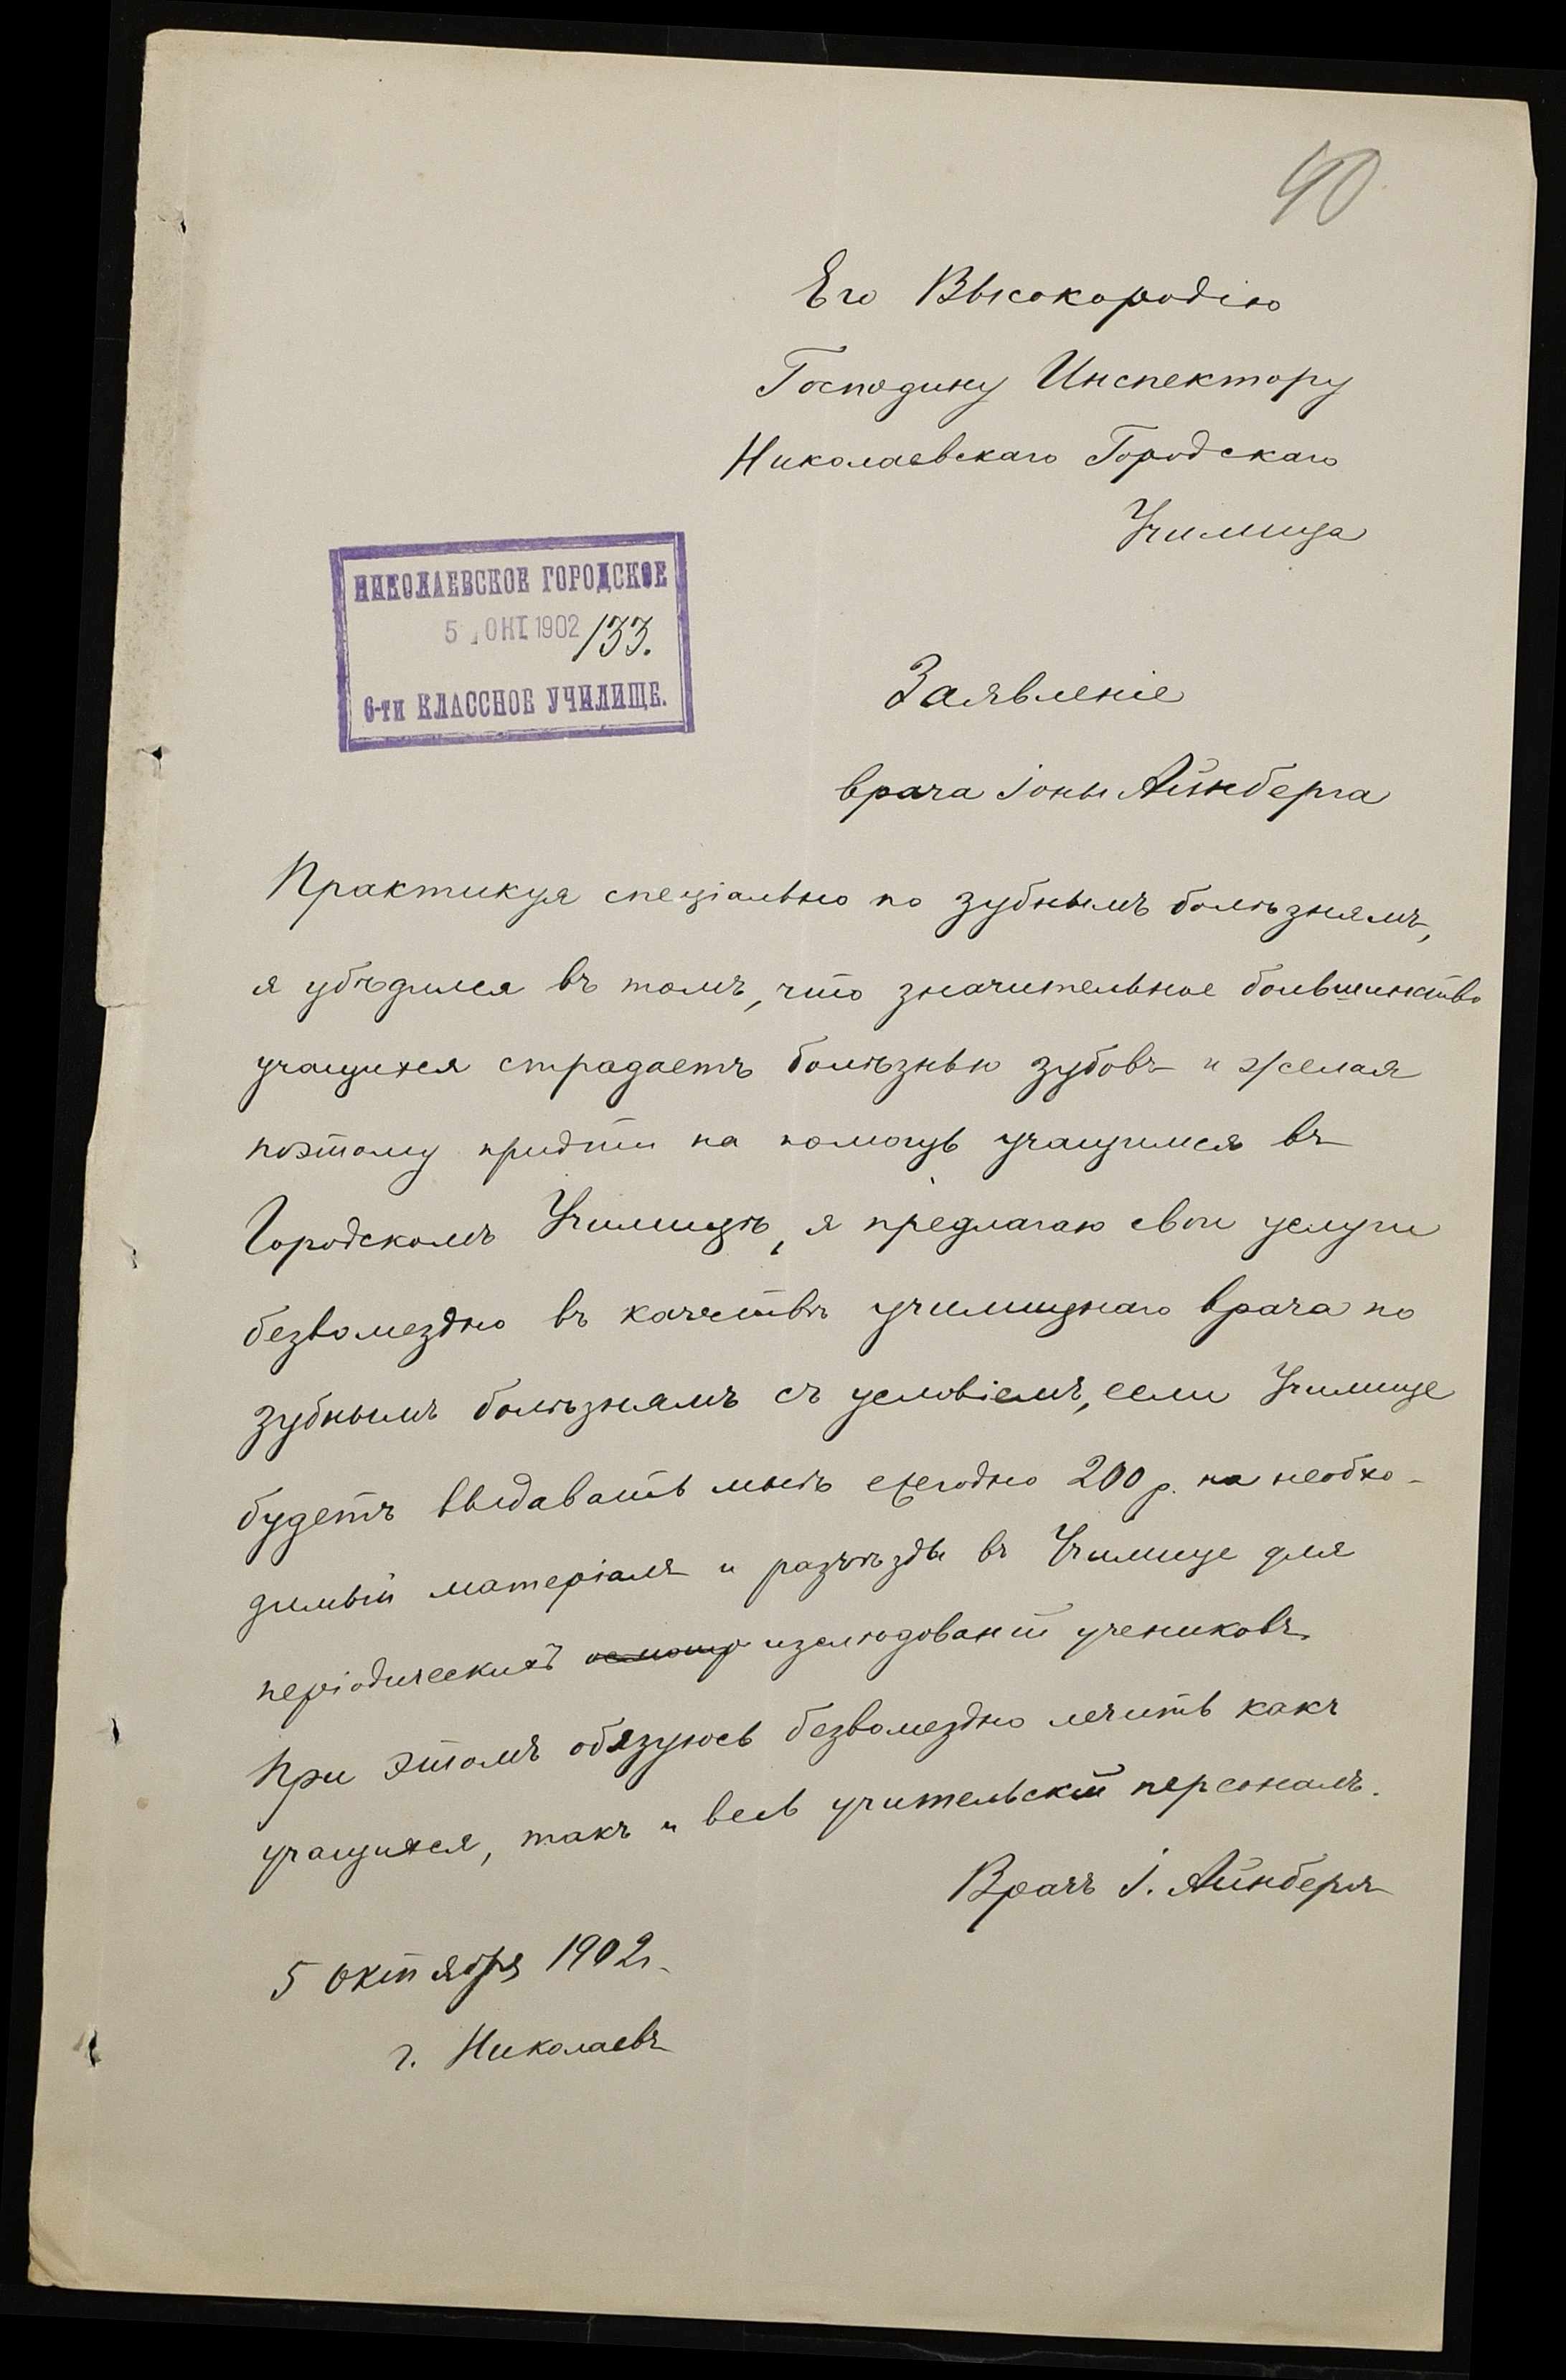 40
Его Высокородію
Господину Инспектору
Николаевскаго Городскаго
Училища
НИКОЛАЕВСКОЕ ГОРОДСКОЕ
5 ОКТ. 1902 133.
6-ти КЛАССНОЕ УЧИЛИЩЕ.
Заявленіе
врача Іоны Айнберга
Практикуя спеціально по зубнымъ болѣзнямъ,
я убѣдился въ томъ, что значительное большинство
учащихся страдаетъ болѣзнью зубовъ и желая
поэтому придти на помощь учащимся въ
Городскомъ Училищѣ, я предлагаю свои услуги
безвомездно въ качествѣ училищнаго врача по
зубнымъ болѣзнямъ съ условіемъ, если Училище
будетъ выдавать мнѣ ежегодно 200 р. на необхо-
димый матеріалъ и разъѣзды въ Училище для
періодическихъ осмотр изслѣдованій учениковъ.
При этомъ обязуюсь безвомездно лечить какъ
учащихся, такъ и весь учительскій персоналъ.
Врачъ І. Айнбергъ
5 октября 1902 г.
г. Николаевъ